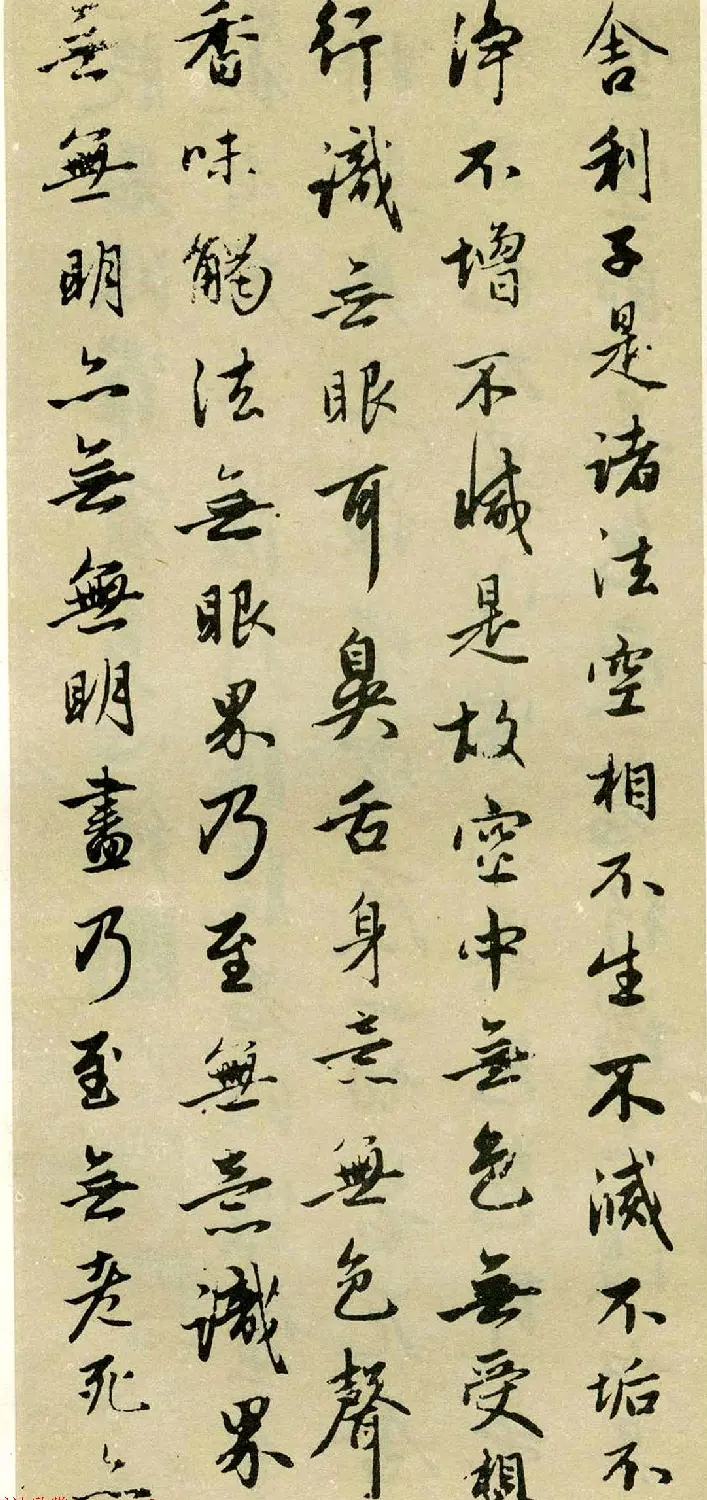 舍利子是諸法空相不生不滅不垢不
淨不增不減是故空中無色無受想
行識無眼耳鼻舌身意無色聲
香味觸法無眼界乃至無意識界
無無明亦無無明盡乃至無老死亦